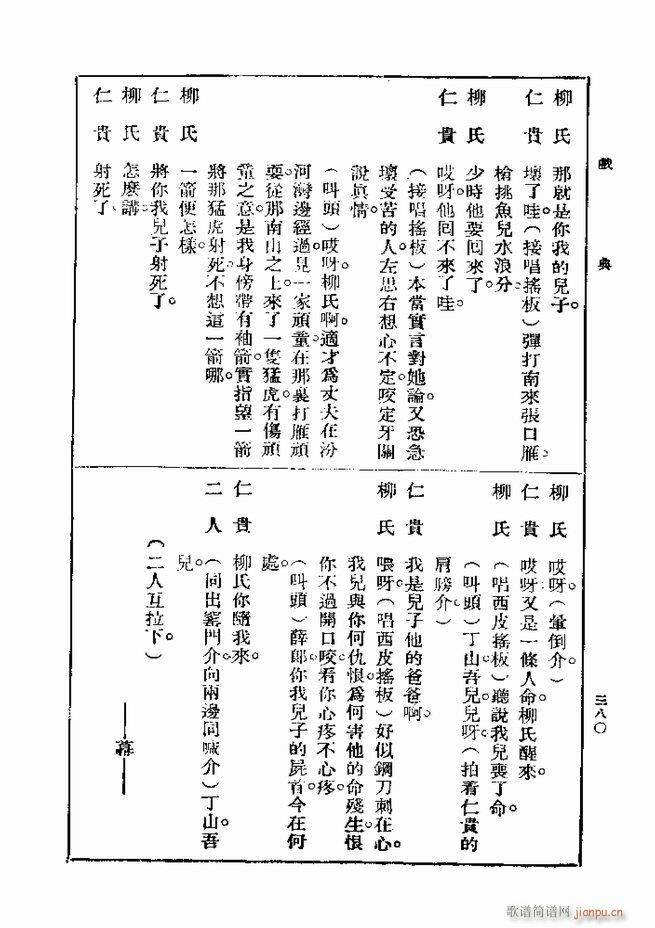 戲典
三八〇
柳氏 那就是你我的兒子。
仁貴 壞了哇(接唱搖板)彈打南來張口雁。
槍挑魚兒水浪分。
柳氏 少時他要回來了。
仁貴 哎呀他回不來了哇。
(接唱搖板)本當實言對她論。又恐急
壞受苦的人。左思右想心不定。咬定牙關
說眞情。
(叫頭)哎呀柳氏啊。適才爲丈夫在汾
河灣邊經過。見一家頑童在那裏打雁。頑
耍。從那南山之上來了一隻猛虎。有傷頑
童之意。是我身傍帶有袖箭。實指望一箭
將那猛虎射死。不想這一箭哪。
柳氏 一箭便怎樣。
仁貴 將你我兒子射死了。
柳氏 怎麼講。
仁貴 射死了。
柳氏 哎呀。(暈倒介)
仁貴 哎呀。又是一條人命。柳氏醒來。
柳氏 (唱西皮搖板)聽說我兒喪了命。
(叫頭)丁山。吾兒。兒呀。(拍着仁貴的
肩膀介)
仁貴 我是兒子他的爸爸啊。
柳氏 喂呀(唱西皮搖板)好似鋼刀刺在心。
我兒與你何仇恨。爲何害他的命殘生。恨
你不過開口咬。看你心疼不心疼。
(叫頭)薛郎。你我兒子的屍首。今在何
處。
仁貴 柳氏你隨我來。
二人 (同出窰門介向兩邊同喊介)丁山。吾
兒。
(二人互拉下。)
——幕——
歌谱简谱网
jianpu.cn